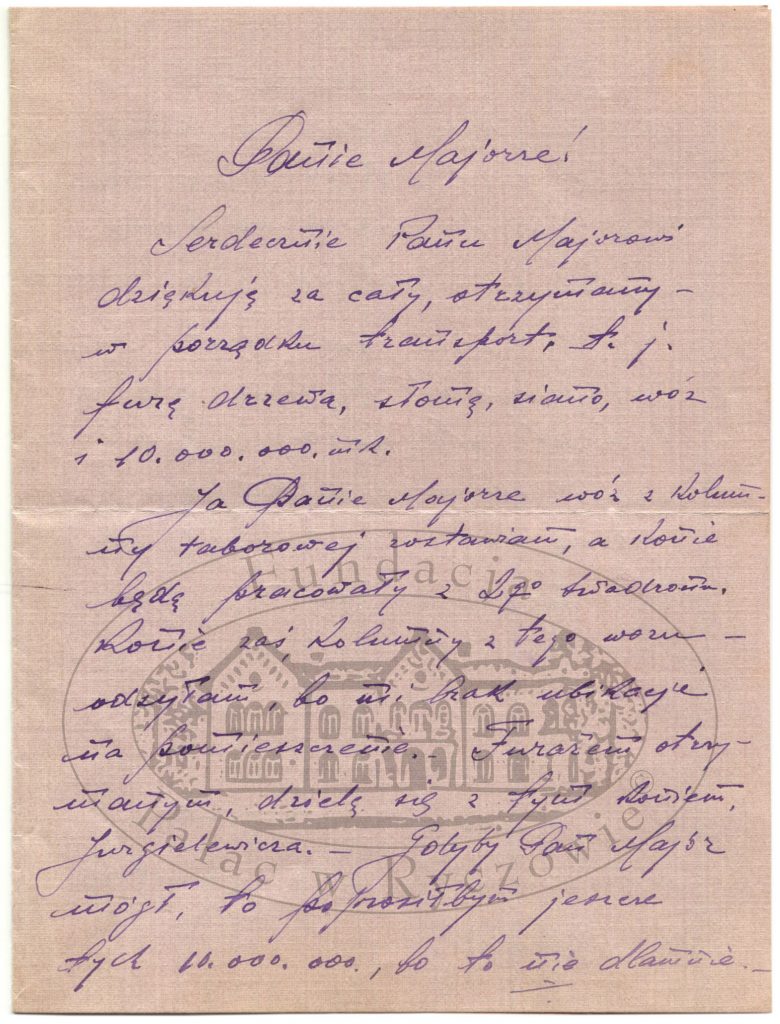 Panie Majorze!
Serdecznie Panu Majorowi
dziękuję za cały, otrzymany –
w porządku transport, t. j.
furę drzewa, słomę, siano, wóz
i 10.000.000. mk.
Ja Panie Majorze wóz z kolum-
ny taborowej zostawiam, a konie
będą pracowały z 2go
Konie zaś kolumny z tego wozu –
odsyłam, bo mi brak ubikacji
na pomieszczenie. – Furażem otrzy-
manym, dzielę się z tym koniem,
Jurgielewicza. – Gdyby Pan Major
mógł, to poprosiłbym jeszcze
tych 10.000.000., bo to nie dlamnie. –
Fundacja
Pałac w Ryczowie®